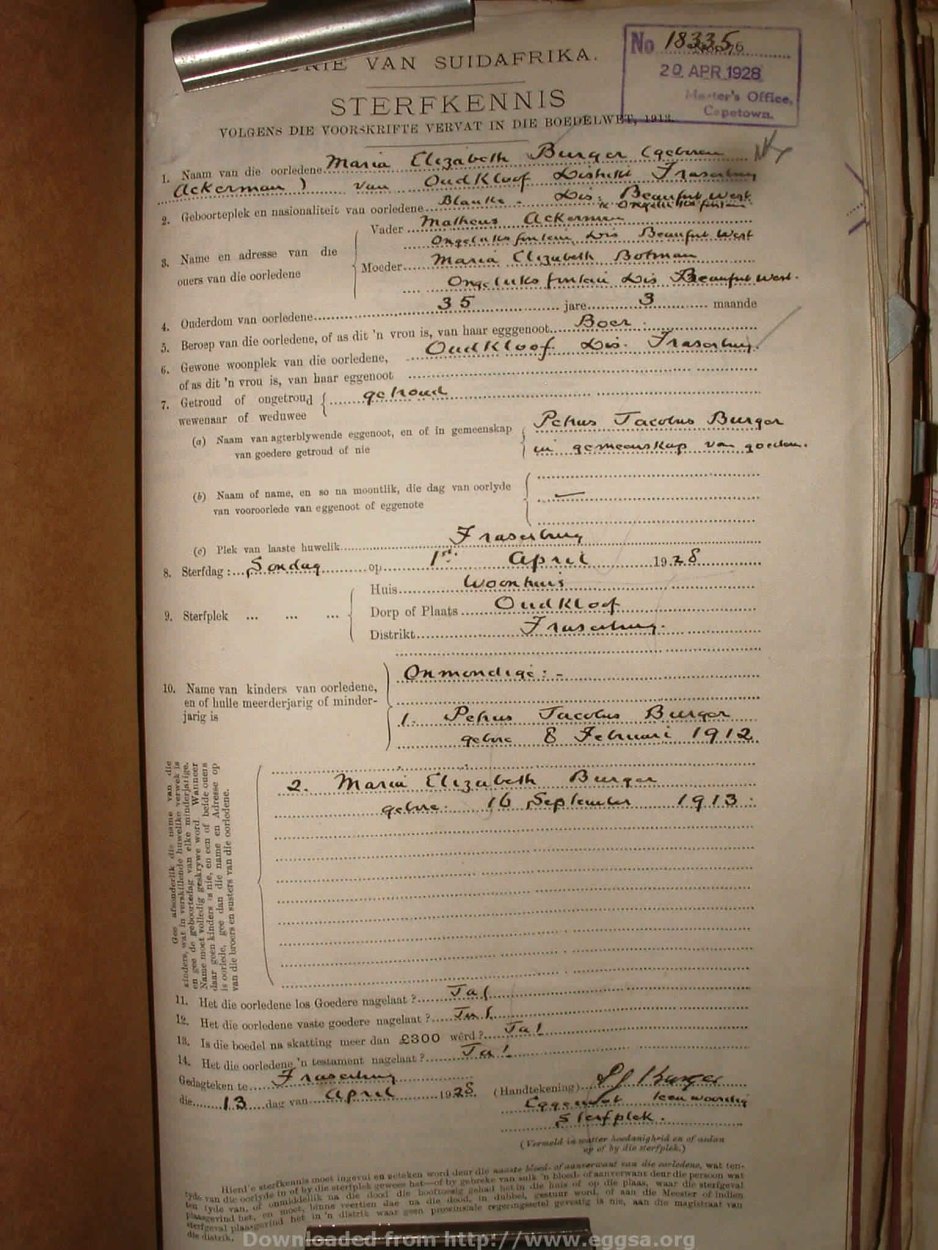 VAN SUIDAFRIKA.
No 18335
20 APR 1928
Master's Office,
Capetown.
STERFKENNIS
VOLGENS DIE VOORSKRIFTE VERVAT IN DIE BOEDELWET, 1913.
1. Naam van die oorledene Maria Elizabeth Burger (geboren
Ackerman) van Oudkloof Distrikt Fraserburg
2. Geboorteplek en nasionaliteit van oorledene Blanke - Dis: Beaufort West
3. Name en adresse van die ouers van die oorledene
Vader Matheus Ackerman
Ongeluksfontein Dis Beaufort West
Moeder Maria Elizabeth Botman
Ongeluksfontein Dis Beaufort West.
4. Ouderdom van oorledene 35 jare 3 maande
5. Beroep van die oorledene, of as dit 'n vrou is, van haar egggenoot Boer
6. Gewone woonplek van die oorledene, Oudkloof Dis. Fraserburg.
of as dit 'n vrou is, van haar eggenoot
7. Getroud of ongetroud getroud
wewenaar of weduwee
(a) Naam van agterblywende eggenoot, en of in gemeenskap Petrus Jacobus Burger
van goedere getroud of nie in gemeenskap van goedere.
(b) Naam of name, en so na moontlik, die dag van oorlyde
van vooroorlede van eggenoot of eggenote
(c) Plek van laaste huwelik Fraserburg
8. Sterfdag: Sondag op 1st April 1928
9. Sterfplek ... ... ...
Huis Woonhuis
Dorp of Plaats Oudkloof
Distrikt Fraserburg.
10. Name van kinders van oorledene,
en of hulle meerderjarig of minder-
jarig is
Onmondige:-
1. Petrus Jacobus Burger
gebore 8 Februari 1912
Gee afsonderlik die name van die
kinders, wat in verskillende huwelike verwek is
en gee de geboortedag van elke minderjatige,
Name moet volledig geskrywe word. Wanneer
daar geen kinders is nie, en een of beide ouers
is oorlede, gee dan die name en Adresse op
van die broers en susters van die oorledene.
2. Maria Elizabeth Burger
gebore 16 September 1913.
11. Het die oorledene los Goedere nagelaat? Ja!
12. Het die oorledene vaste goedere nagelaat? Ja!
13. Is die boedel na skatting meer dan £300 wérd? Ja!
14. Het die oorledene 'n testament nagelaat? Ja!
Gedagteken te Fraserburg
die 13 dag van April 1928
(Handtekening) P J Burger
Eggenoot teenwoordig
Sterfplek.
(Vermeld in watter hoedanigheid en of aadan
op of by die sterfplek.)
Hierd'e sterfkennis moet ingevul en geteken word deur die naaste bloed- of aanverwant van die oorledene, wat ten-
tyde van die oorlyde in of by die sterfplek gewees het—of by gebreke van sulk 'n bloed- of aanverwant deur die persoon wat
ten tyde van, of onmiddellik na die dood die hooftoesig gehad het in die huis of op die plaas, waar die sterfgeval
plaasgevind het, en moet, binne veertien dae na die dood, in dubbel, gestuur word, of aan die Meester of indien
sterfgeval plaasgevind het in 'n distrik waar geen provinsiale regeringsetel gevestig is nie, aan die magistraat van
die distrik.
Downloaded from http://www.eggsa.org